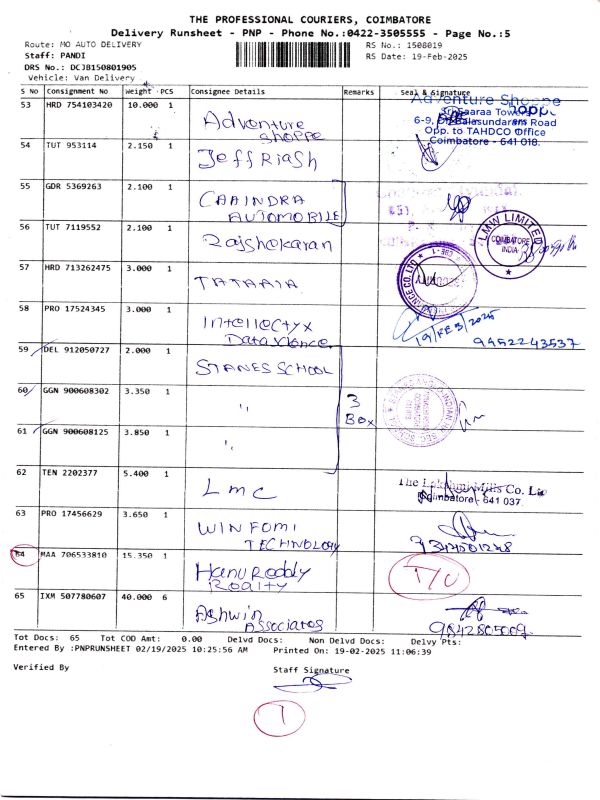 THE PROFESSIONAL COURIERS, COIMBATORE
Delivery Runsheet - PNP - Phone No.:0422-3505555 - Page No.:5
Route: MO AUTO DELIVERY
RS No.: 1508019
Staff: PANDI
RS Date: 19-Feb-2025
DRS No.: DCJB150801905
Vehicle: Van Delivery
S No Consignment No Weight PCS Consignee Details Remarks Seal & Signature
53 HRD 754103420 10.000 1 Adventure Shoppe
Adventure Shoppe
Sri Saaraa Towers
6-9, Balasundaram Road
Opp. to TAHDCO Office
Coimbatore - 641 018.
54 TUT 953114 2.150 1 Jeff Riash
55 GDR 5369263 2.100 1 CHAINDRA AUTOMOBILE
56 TUT 7119552 2.100 1 Rajshekaran
LMW LIMITED
COIMBATORE
INDIA
57 HRD 713262475 3.000 1 TATAAIA
58 PRO 17524345 3.000 1 Intellectyx Datascience
19/FEB/2025
9952243537
59 DEL 912050727 2.000 1 STANES SCHOOL
60 GGN 900608302 3.350 1 "
3 Box
61 GGN 900608125 3.850 1 "
62 TEN 2202377 5.400 1 LMC
The Lakshmi Mills Co. Ltd
Coimbatore - 641 037.
63 PRO 17456629 3.650 1 WINFOMI TECHNOLOGY
64 MAA 706533810 15.350 1 Hanu Reddy Realty
65 IXM 507780607 40.000 6 Ashwin Associates
9842805009
Tot Docs: 65 Tot COD Amt: 0.00 Delvd Docs: Non Delvd Docs: Delvy Pts:
Entered By :PNPRUNSHEET 02/19/2025 10:25:56 AM Printed On: 19-02-2025 11:06:39
Verified By
Staff Signature